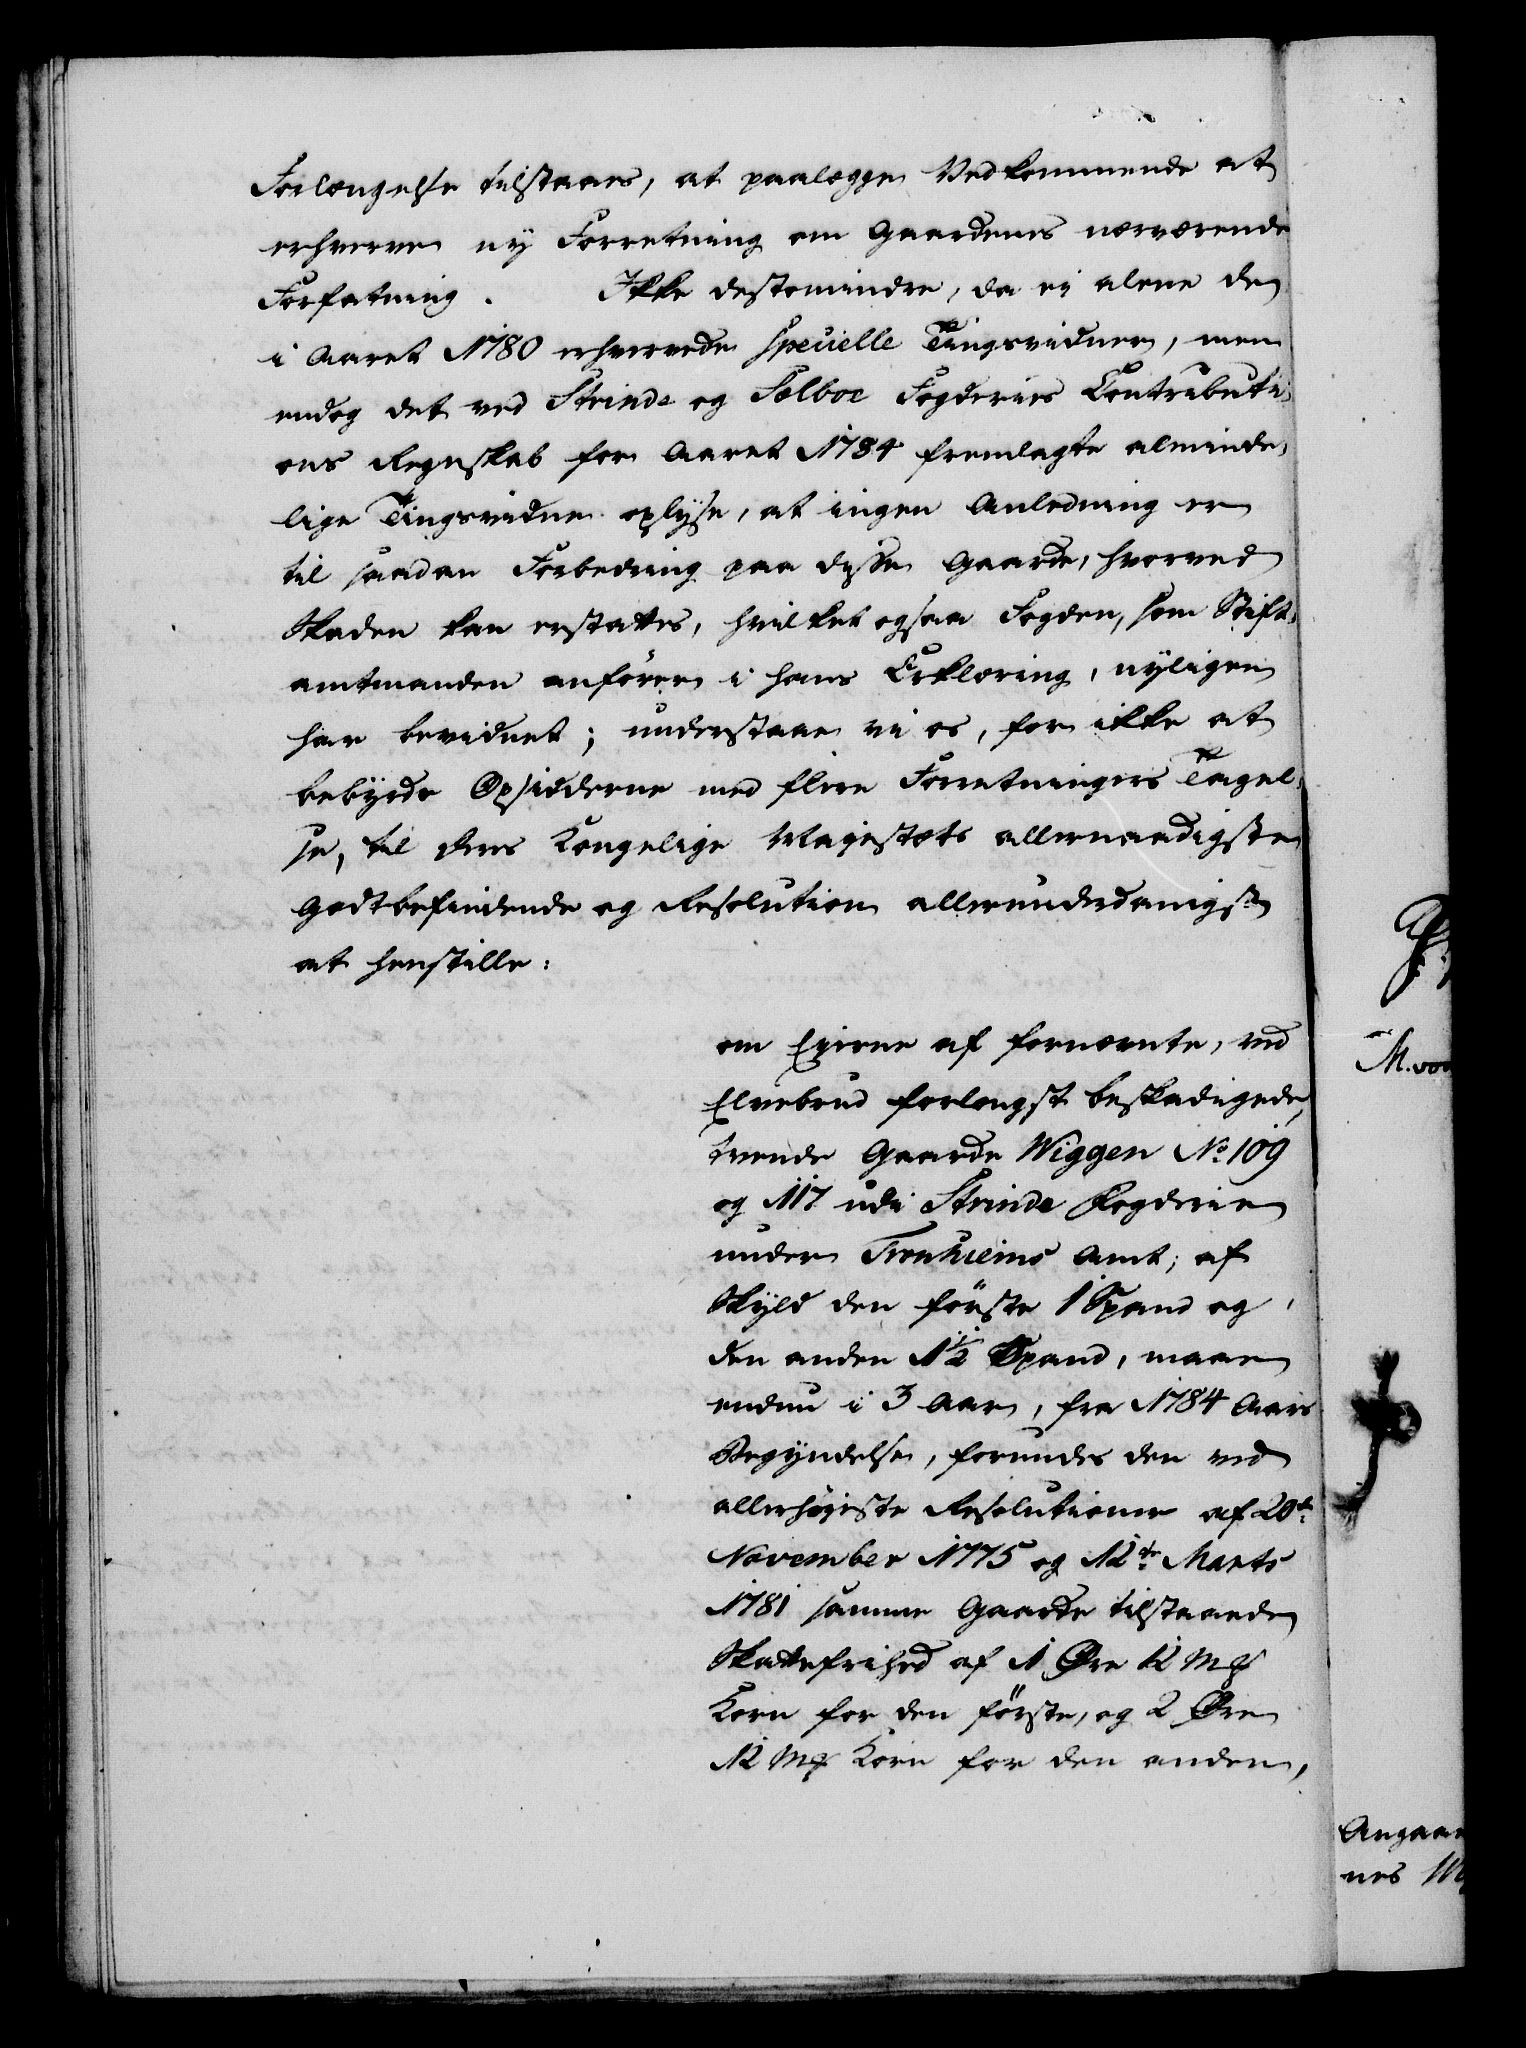 Forlængelse tilstaaes, at paalægge Vedkommende at
erhverve ny Forretning om Gaardenes nærværende
Forfatning. Ikke destomindre, da ei alene de
i Aaret 1780 erhvervede specielle Tingsvidner, men
endog det ved Strinde og Selboe Fogderies Contributi-
ons Regnskab for Aaret 1784 fremlagte alminde-
lige Tingsvidne oplyse, at ingen Anledning er
til saadan Forbedring paa disse Gaarde, hvorved
Skaden kan erstattes, hvilket ogsaa Fogden, som Stift-
amtmanden anfører i hans Erklæring, nyligen
har bevidnet; understaae vi os, for ikke at
bebyrde Opsidderne med flere Forretningers Tagel-
se, til Deres Kongelige Majestæts allernaadigste
Godtbefindende og Resolution allerunderdanigst
at henstille:
om Eierne af fornævnte, ved
Elvebrud forlængst beskadigede,
tvende Gaarde Wiggen No. 109
og 117 udi Strinde Fogderie
under Tronhiems Amt, af
Skyld den første 1 Spand og
den anden 1 1/2 Spand, maae
endnu i 3 Aar, fra 1784 Aars
Begyndelse, forundes den ved
allerhøieste Resolutioner af 20de
November 1775 og 12te Marts
1781 samme Gaarde tilstaaede
Skattefrihed af 1 Øre 12 Mk
Korn for den første, og 2 Øre
12 Mk Korn for den anden,
M. von
Angaae
nes